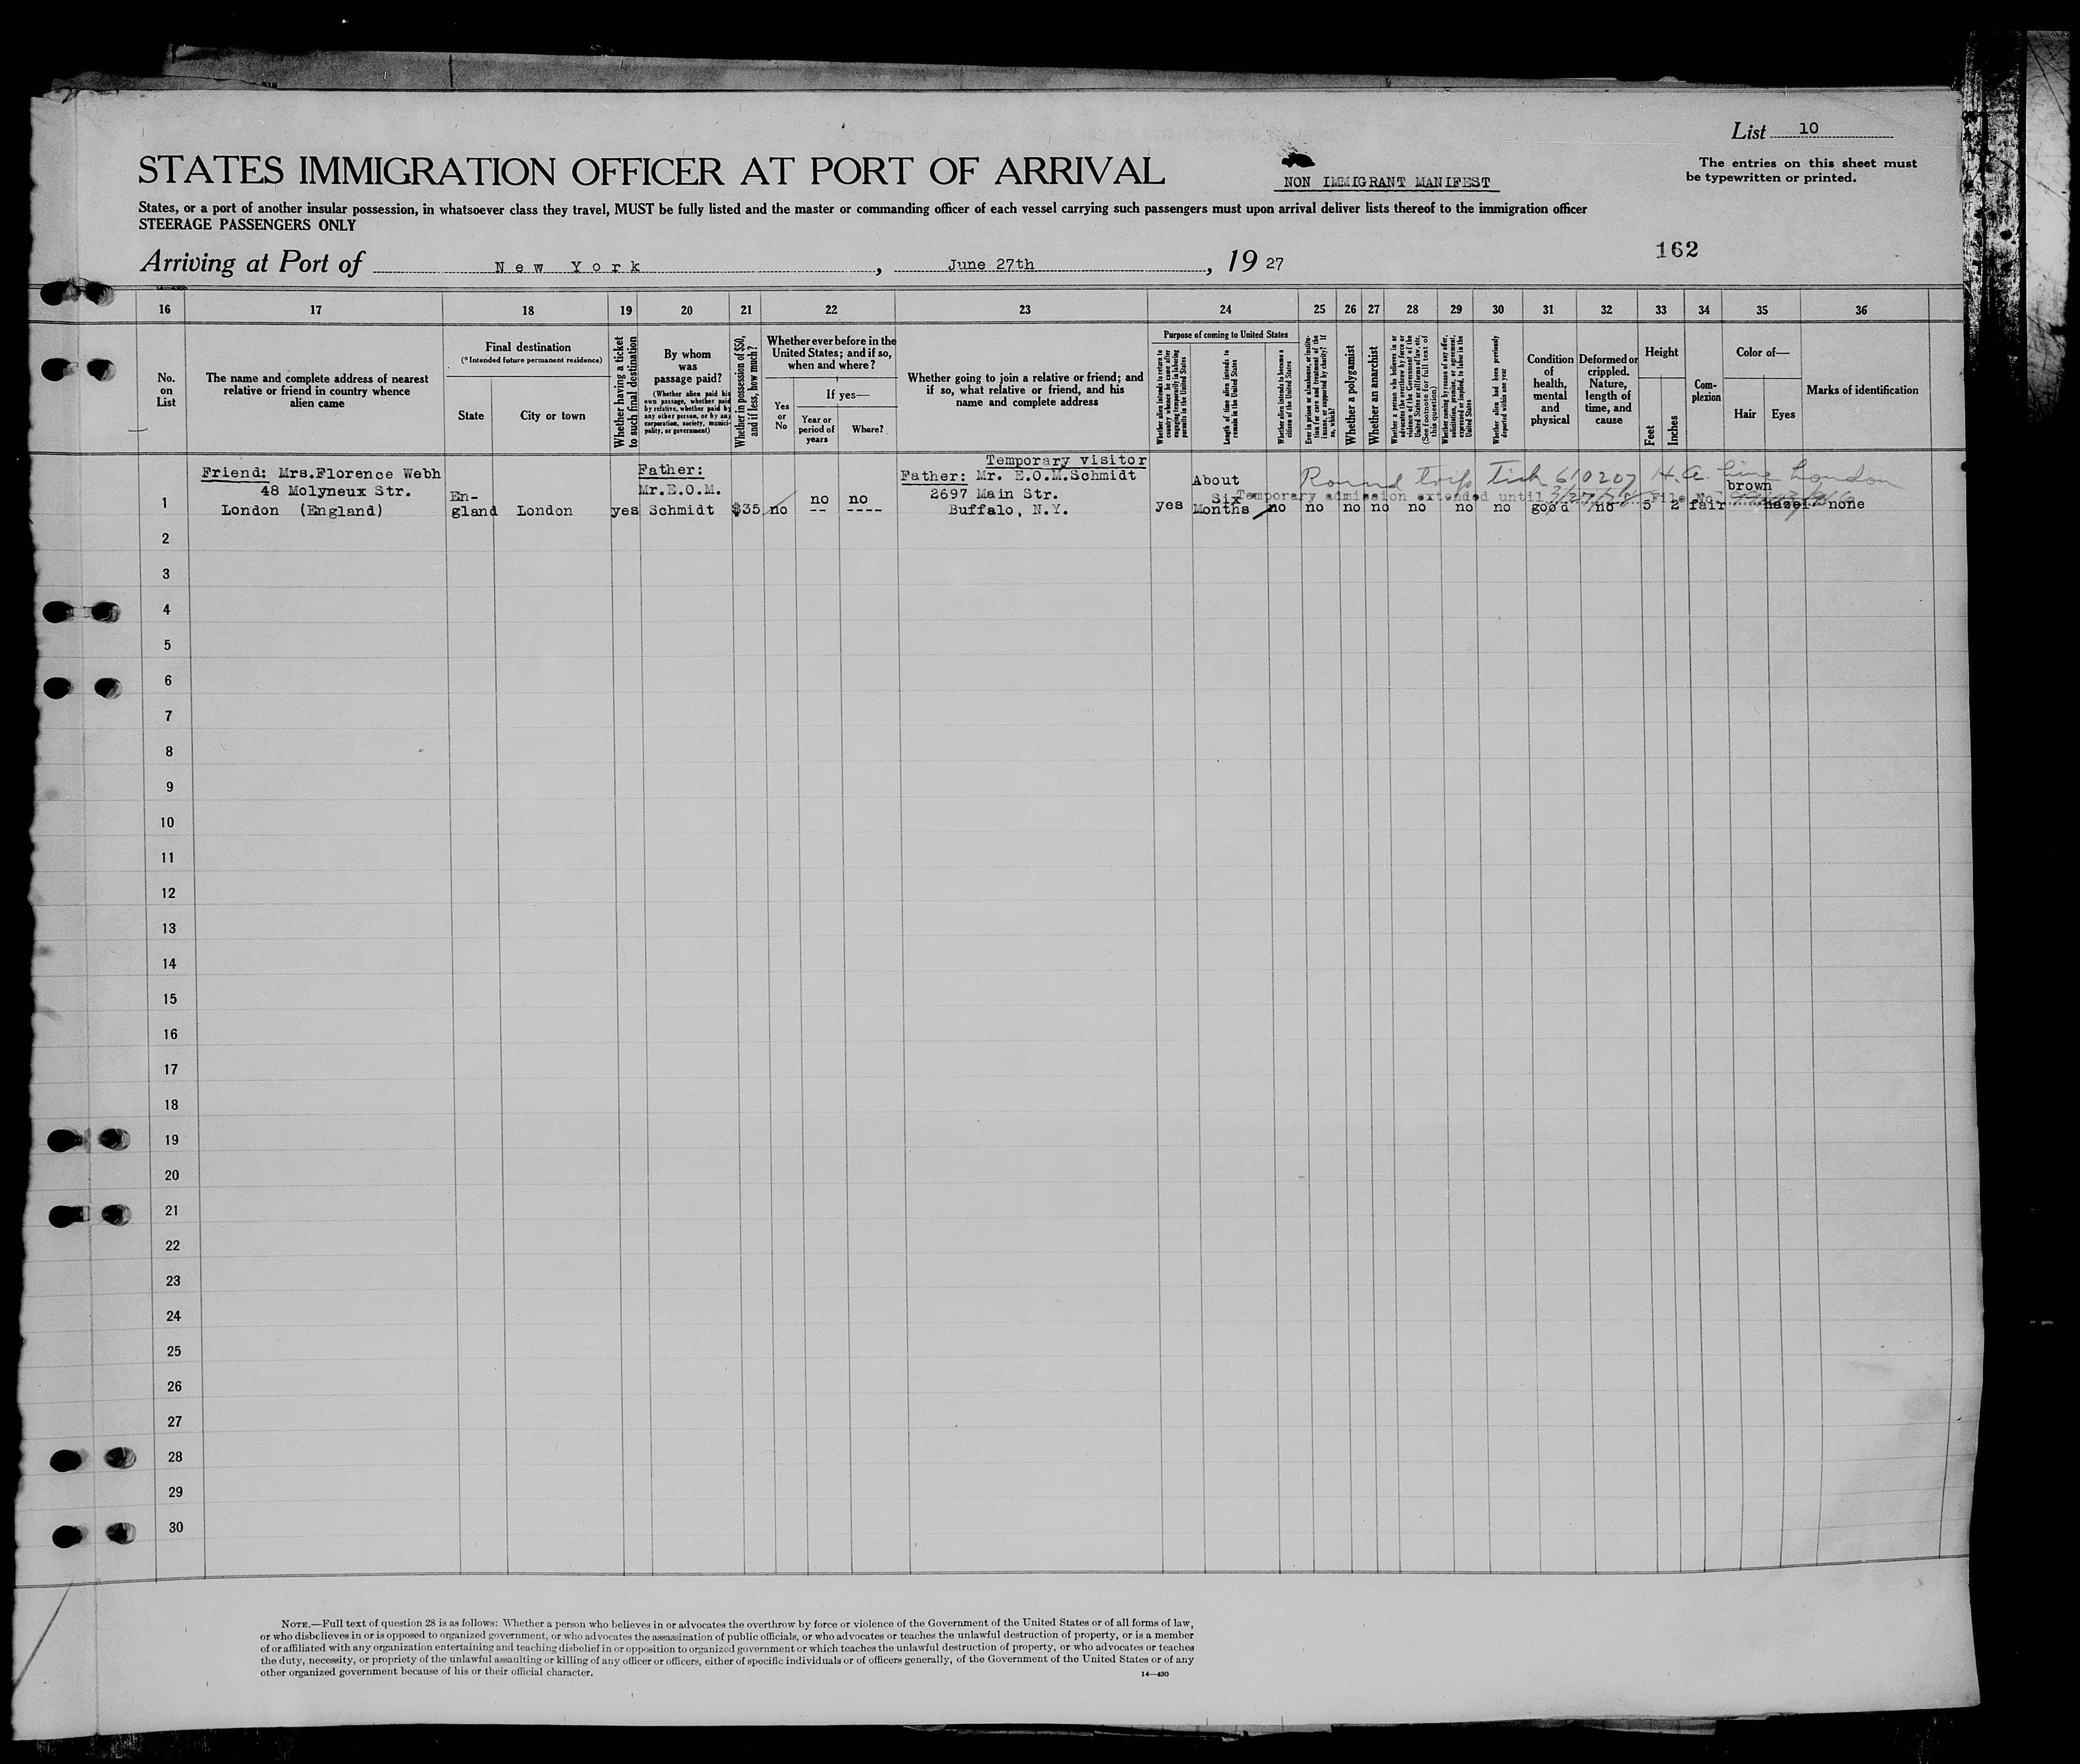 List 10
The entries on this sheet must
be typewritten or printed.
STATES IMMIGRATION OFFICER AT PORT OF ARRIVAL
NON IMMIGRANT MANIFEST
States, or a port of another insular possession, in whatsoever class they travel, MUST be fully listed and the master or commanding officer of each vessel carrying such passengers must upon arrival deliver lists thereof to the immigration officer
STEERAGE PASSENGERS ONLY
162
Arriving at Port of New York, June 27th, 19 27
16 17 18 19 20 21 22 23 24 25 26 27 28 29 30 31 32 33 34 35 36
No.
on
List
The name and complete address of nearest
relative or friend in country whence
alien came
Final destination
(*Intended future permanent residence)
State
City or town
Whether having a ticket
to such final destination
By whom
was
passage paid?
(Whether alien paid his
own passage, whether paid
by relative, whether paid by
any other person, or by any
corporation, society, munici-
pality, or government)
Whether in possession of $50,
and if less, how much?
Whether ever before in the
United States; and if so,
when and where?
Yes
or
No
If yes—
Year or
period of
years
Where?
Whether going to join a relative or friend; and
if so, what relative or friend, and his
name and complete address
Purpose of coming to United States
Whether alien intends to return to
country whence he came after
engaging temporarily in laboring
pursuits in the United States
Length of time alien intends to
remain in the United States
Whether alien intends to become a
citizen of the United States
Ever in prison or almshouse, or institu-
tion for care and treatment of the
insane, or supported by charity? If
so, which?
Whether a polygamist
Whether an anarchist
Whether a person who believes in or
advocates the overthrow by force or
violence of the Government of the
United States or all forms of law, etc.
(See footnote for full text of
this question)
Whether coming by reason of any offer,
solicitation, promise, or agreement,
expressed or implied, to labor in the
United States
Whether alien had been previously
deported within one year
Condition
of
health,
mental
and
physical
Deformed or
crippled.
Nature,
length of
time, and
cause
Height
Feet
Inches
Com-
plexion
Color of—
Hair
Eyes
Marks of identification
1
Friend: Mrs.Florence Webh
48 Molyneux Str.
London (England)
En-
gland
London
yes
Father:
Mr.E.O.M.
Schmidt
$35
no
no
--
no
----
Temporary visitor
Father: Mr. E.O.M.Schmidt
2697 Main Str.
Buffalo, N.Y.
yes
About
Six
Months
no
Round trip Tick 610207 H.A. Line London
Temporary admission extended until 3/27/28 File No.
no no no no no no good no 5 2 fair
brown
hazel
none
2
3
4
5
6
7
8
9
10
11
12
13
14
15
16
17
18
19
20
21
22
23
24
25
26
27
28
29
30
NOTE.—Full text of question 28 is as follows: Whether a person who believes in or advocates the overthrow by force or violence of the Government of the United States or of all forms of law,
or who disbelieves in or is opposed to organized government, or who advocates the assassination of public officials, or who advocates or teaches the unlawful destruction of property, or is a member
of or affiliated with any organization entertaining and teaching disbelief in or opposition to organized government or which teaches the unlawful destruction of property, or who advocates or teaches
the duty, necessity, or propriety of the unlawful assaulting or killing of any officer or officers, either of specific individuals or of officers generally, of the Government of the United States or of any
other organized government because of his or their official character.
14—430